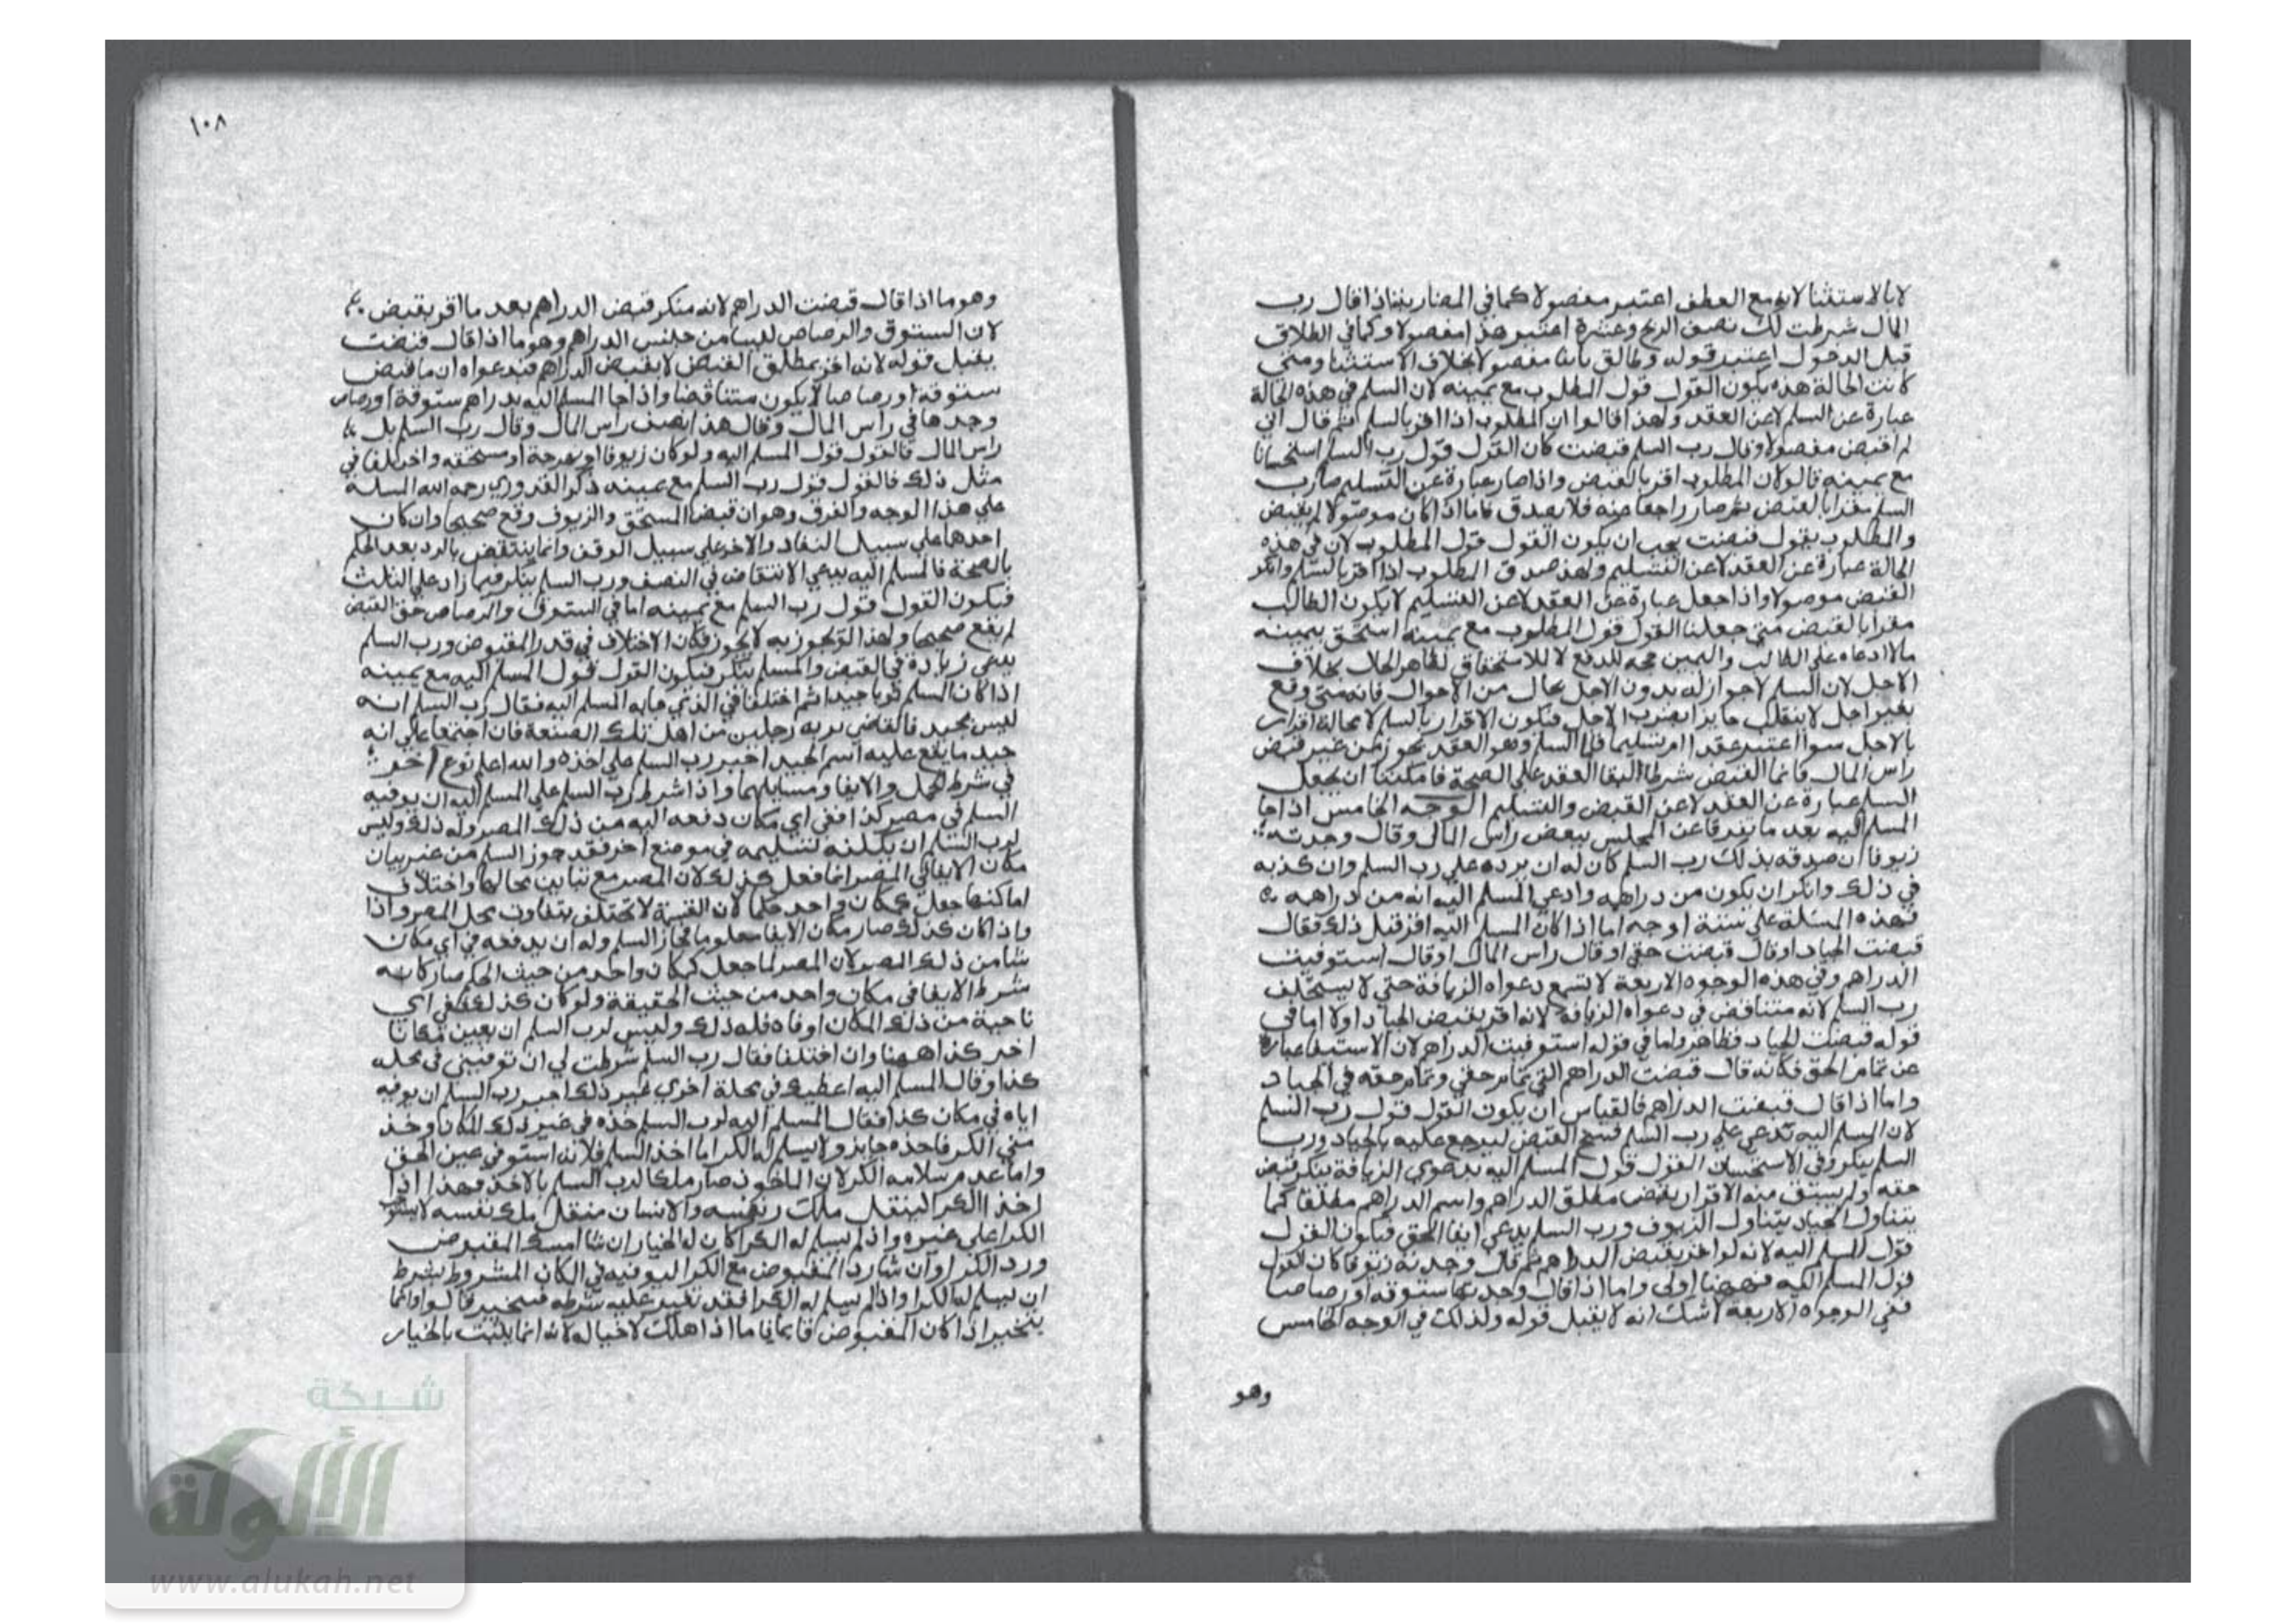 لابالاستثنا لانه مع العطف اعتبر مفصولا كما في المضاربة اذا قال رب
المال شرطت لك نصف الربح وعشرة اعتبر هذا مفصولا وكما في الطلاق
قبل الدخول اعتبر قوله وطالق بائنا مفصولا بخلاف الاستثنا ومتى
كانت الحالة هذه يكون القول قول المطلوب مع يمينه لان السلم في هذه الحالة
عبارة عن السلم لا عن العقد ولهذا قالوا ان المطلوب اذا اقر بالسلم ثم قال اني
لم اقبض مفصولا وقال رب السلم قبضت كان القول قول رب السلم استحسانا
مع يمينه قالوا لان المطلوب اقر بالقبض واذا صار عبارة عن التسليم صار رب
السلم مقرا بالقبض ثم صار راجعا عنه فلا يصدق فاما اذا كان موصولا لم يقبض
والمطلوب يقول قبضت يجب ان يكون القول قول المطلوب لان في هذه
الحالة عبارة عن العقد لا عن التسليم ولهذا صدق المطلوب اذا اقر بالسلم وانكر
القبض موصولا واذا جعل عبارة عن العقد لا عن التسليم لا يكون الطالب
مقرا بالقبض متى جعلنا القول قول المطلوب مع يمينه استحق بيمينه
مالا ادعاه على الطالب واليمين حجة للدفع لا للاستحقاق لظاهر الحال بخلاف
الاجل لان السلم لا جواز له بدون الاجل بحال من الاحوال فانه متى وقع
بغير اجل لا ينقلب جايزا بضرب الاجل فيكون الاقرار بالسلم لا محالة اقرار
بالاجل سوا اعتبر عقدا ام تسليما فاما السلم وهو العقد يجوز من غير قبض
راس المال فانما القبض شرط البقا العقد على الصحة فامكننا ان يجعل
السلم عبارة عن العقد لا عن القبض والتسليم الوجه الخامس اذا جا
المسلم اليه بعد ما تفرقا عن المجلس ببعض راس المال وقال وجدته
زيوفا ان صدقه بذلك رب السلم كان له ان يرده على رب السلم وان كذبه
في ذلك وانكر ان يكون من دراهمه وادعى المسلم اليه انه من دراهمه
فهذه المسئلة على ستة اوجه اما اذا كان المسلم اليه اقر قبل ذلك فقال
قبضت الجياد او قال قبضت حقي او قال راس المال او قال استوفيت
الدراهم وفي هذه الوجوه الاربعة لا تسمع دعواه الزيافة حتى لا يستحلف
رب السلم لانه متناقض في دعواه الزيافة لانه اقر بقبض الجياد اولا اما في
قوله قبضت الجياد فظاهر واما في قوله استوفيت الدراهم لان الاستيفا عبارة
عن تمام الحق فكانه قال قبضت الدراهم التي تمام حقي وتمام حقه في الجياد
واما اذا قال قبضت الدراهم فالقياس ان يكون القول قول رب السلم
لان المسلم اليه يدعي على رب السلم فسخ القبض ليرجع عليه بالجياد ورب
السلم ينكر وفي الاستحسان القول قول المسلم اليه بدعوى الزيافة ينكر قبض
حقه ولم يسبق منه الاقرار بقبض مطلق الدراهم واسم الدراهم مطلقا كما
يتناول الجياد يتناول الزيوف ورب السلم يدعي ايفا الحق فيكون القول
قول المسلم اليه لانه لو اقر بقبض الدراهم ثم قال وجدته زيوفا كان القول
قول المسلم اليه فههنا اولى واما اذا قال وجدتها ستوقة او رصاصا
ففي الوجوه الاربعة لا شك انه لا يقبل قوله ولذلك في الوجه الخامس
وهو
١٠٨
وهو ما اذا قال قبضت الدراهم لانه منكر قبض الدراهم بعد ما اقر بقبض
لان الستوق والرصاص ليسا من جنس الدراهم وهو ما اذا قال قبضت
يقبل قوله لانه اقر بمطلق القبض لا بقبض الدراهم فبدعواه ان ما قبض
ستوقة او رصاصا لا يكون متناقضا واذا جا المسلم اليه بدراهم ستوقة او رصاص
وجدها في راس المال وقال هذا نصف راس المال وقال رب السلم بل
راس المال فالقول قول المسلم اليه ولو كان زيوفا او نبهرجة او مستحقة واختلفا في
مثل ذلك فالقول قول رب السلم مع يمينه ذكر القدوري رحمه الله المسلة
على هذا الوجه والفرق وهو ان قبض المستحق والزيوف وقع صحيحا وان كان
احدها على سبيل النفاد والاخر على سبيل الوقف وانما ينتقض بالرد بعد الحكم
بالصحة فالمسلم اليه يدعي الانتقاض في النصف ورب السلم ينكر فيما زاد على الثلث
فيكون القول قول رب السلم مع يمينه اما في الستوق والرصاص حق القبض
لم يقع صحيحا ولهذا التجوز به لا يجوز فكان الاختلاف في قدر المقبوض ورب السلم
يدعي زيادة في القبض والمسلم ينكر فيكون القول قول المسلم اليه مع يمينه
اذا كان السلم ثوبا جيدا ثم اختلفا في الذي جا به المسلم اليه فقال رب السلم انه
ليس بجيد فالقاضي يريه رجلين من اهل تلك الصنعة فان اجتمعا على انه
جيد ما يقع عليه اسم الجيد اجبر رب السلم على اخذه والله اعلم نوع اخر
في شرط الحمل والايفا ومسايلهما واذا شرط رب السلم على المسلم اليه ان يوفيه
السلم في مصر كذا ففي اي مكان دفعه اليه من ذلك المصر وله ذلك وليس
لرب السلم ان يكلفه لتسليمه في موضع اخر فقد جوز السلم من غير بيان
مكان الايفا في المصر انما فعل كذلك لان المصر مع تباين محالها واختلاف
اماكنها جعل كمكان واحد حكما لان القيمة لا تختلف بتفاوت محل المصر واذا
واذا كان كذلك صار مكان الايفا معلوما فجاز السلم وله ان يدفعه في اي مكان
شا من ذلك المصر لان المصر لما جعل كمكان واحد من حيث الحكم صار كانه
شرط الايفا في مكان واحد من حيث الحقيقة ولو كان كذلك ففي اي
ناحية من ذلك المكان اوفاه فله ذلك وليس لرب السلم ان يعين مكانا
اخر كذا ههنا وان اختلفا فقال رب السلم شرطت لي ان توفيني في محلة
كذا وقال المسلم اليه اعطيك في محلة اخرى غير ذلك اجبر رب السلم ان يوفيه
اياه في مكان كذا فقال المسلم اليه لرب السلم خذه في غير ذلك المكان وخذ
مني الكرا فاخذه جايز ولا يسلم له الكرا اما اخذ السلم فلانه استوفى عين الحق
واما عدم سلامة الكرا لان الماخوذ صار ملكا لرب السلم بالاخذ فهذا اذا
اخذ الكرا لينقل ملك نفسه والانسان منقل ملك نفسه لا يستوجب
الكرا على غيره واذا لم يسلم له الكرا كان له الخيار ان شا امسك المقبوض
ورد الكرا وان شا رد المقبوض مع الكرا ليوفيه في المكان المشروط بشرط
ان يسلم له الكرا واذا لم يسلم له الكرا فقد تغير عليه شرطه فيتخير قالوا وانما
يتخير اذا كان المقبوض قايما فاما اذا هلك لا خيار له لانه انما يثبت بالخيار
شبكة
الألوكة
www.alukah.net